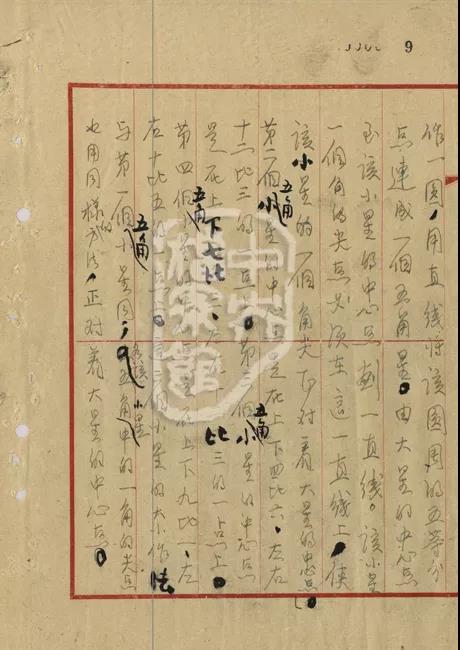 9
作一圆,用直线将该圆周的五等分
点連成一個五角星。由大星的中心点
至该小星的中心点,劃一直线。该小星
一個角的尖点必须在這一直线上,使
该小星的一個角尖正对着大星的中心点。
第二個小五角星的中心点是在上下四比六、左右
十二比三的一点上。第三個小五角星的中心点
是在上下七比三、左右十二比三的一点上。
第四個小五角星的中心点是在上下九比一、左
右十比五的一点上。這三個小星的大小作法
与第一個小五角星同;各该小星的一角的尖点
也用同樣的方法,正对着大星的中心点。
中央檔案館